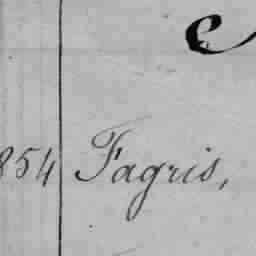 854 Fagris,